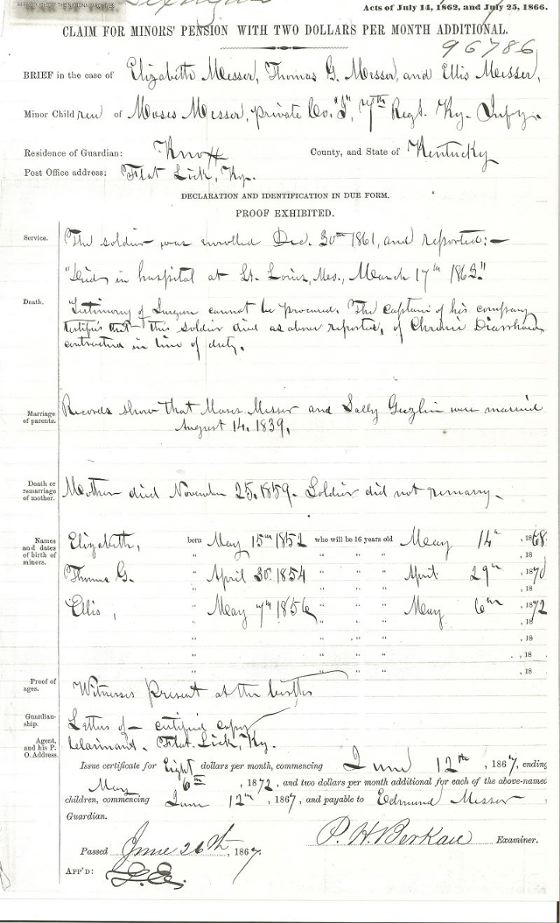 Acts of July 14, 1862, and July 25, 1866.
CLAIM FOR MINORS' PENSION WITH TWO DOLLARS PER MONTH ADDITIONAL.
96786
BRIEF in the case of Elizabeth Messer, Thomas G. Messer, and Ellis Messer,
Minor Children of Moses Messer, private Co. 7th Regt. Ky. Infy.
Residence of Guardian: Knox County, and State of Kentucky
Post Office address: Flat Lick, Ky.
DECLARATION AND IDENTIFICATION IN DUE FORM.
PROOF EXHIBITED.
Service. The soldier was enrolled Dec. 30th 1861, and reported:—
"Died in hospital at St. Louis, Mo., March 17th 1863."
Death. Testimony of Surgeon cannot be procured. The captain of his company
certifies that this soldier died as above reported, of Chronic Diarrhoea
contracted in line of duty.
Marriage of parents. Records show that Moses Messer and Sally were married
August 14, 1839.
Death or remarriage of mother. Mother died November 25, 1859. Soldier did not remarry.
Names and dates of birth of minors.
Elizabeth, born May 15th 1852 who will be 16 years old May 14th, 1868
" " , 18
Thomas G. " April 30th 1854 " " April 29th, 1870
" " , 18
Ellis, " May 7th 1856 " " May 6th, 1872
" " " , 18
" " " , 18
" " " , 18
" " " , 18
Proof of ages. Witnesses present at the births
Guardianship. Letters of — certified copy
Agent, and his P. O. Address. Claimant. Flat Lick, Ky.
Issue certificate for Eight dollars per month, commencing June 12th, 1867, ending
May 6th, 1872, and two dollars per month additional for each of the above-named
children, commencing June 12th, 1867, and payable to Edmund Messer
Guardian.
P. H. Examiner.
Passed June 26th, 1867.
APP'D: